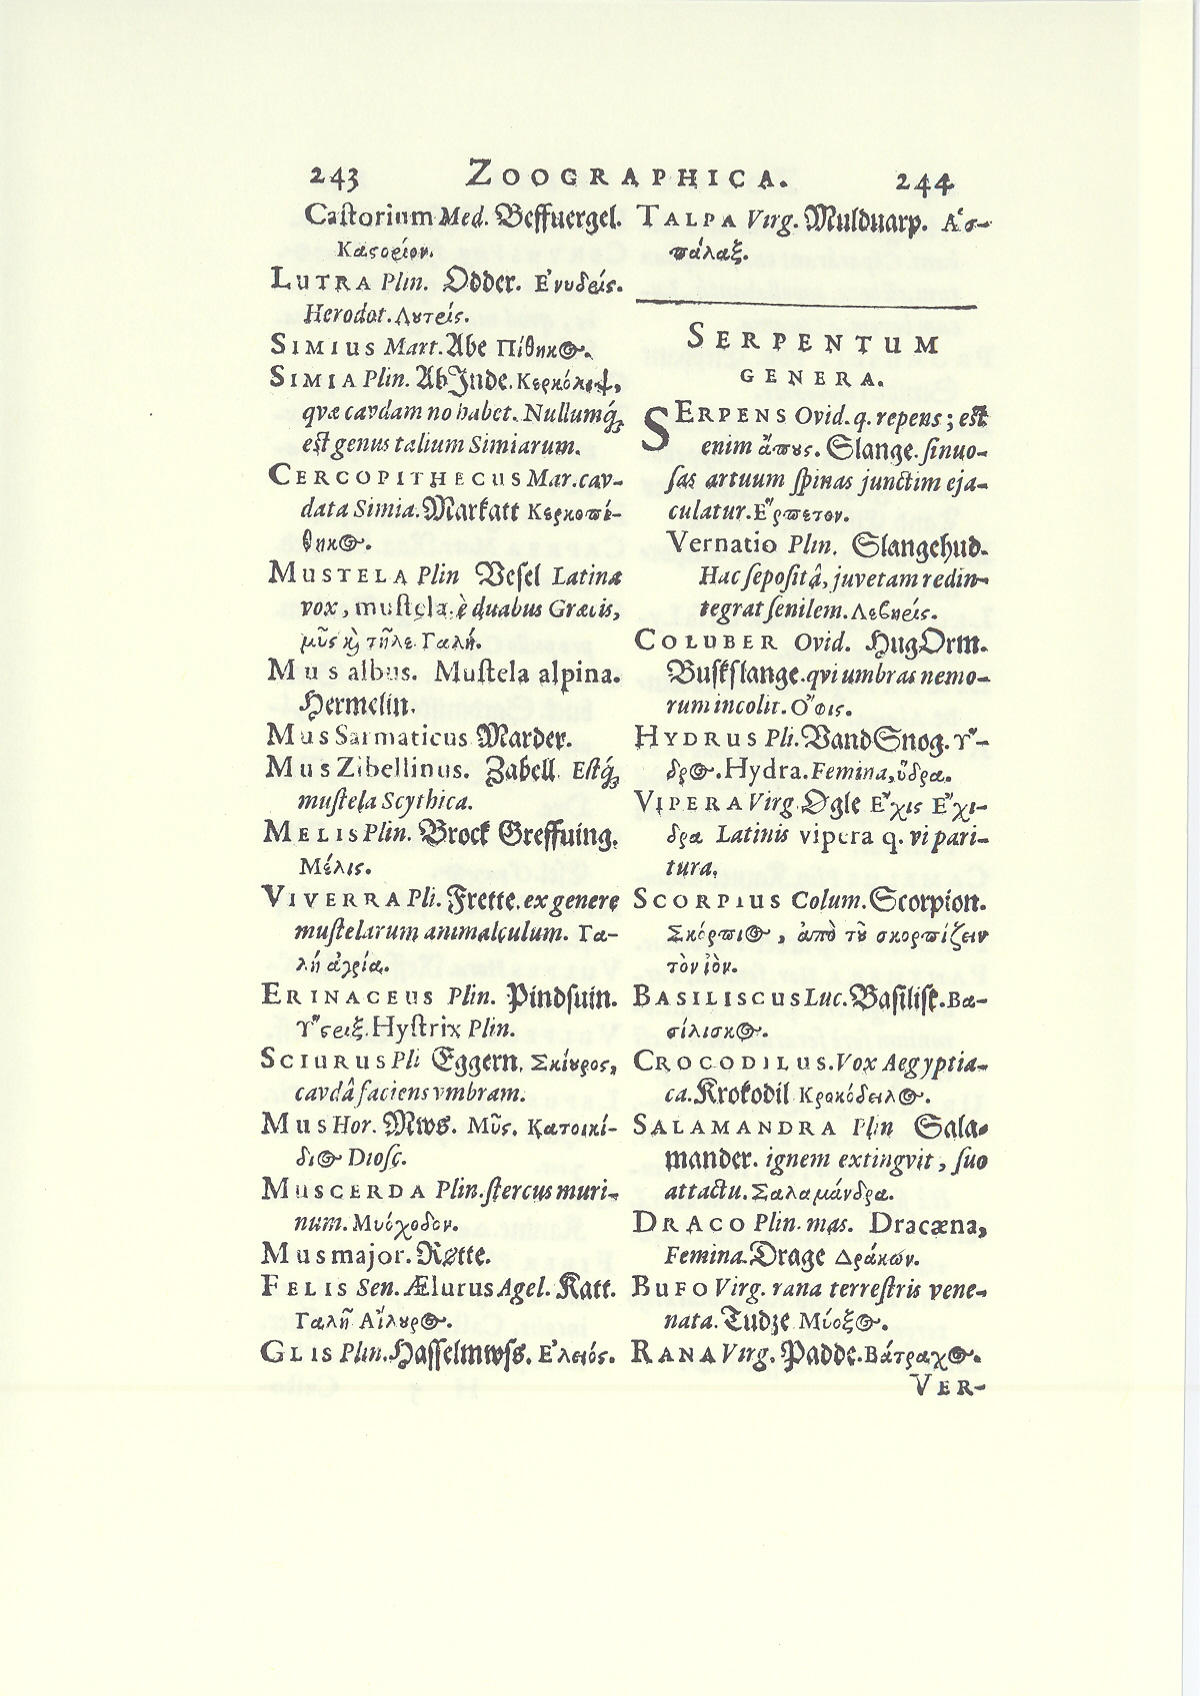 243 ZOOGRAPHICA. 244
Caſtorium Med. Beffuergel.
Καϛορίον.
LUTRA Plin. Odder. Ε᾿νυδρίς.
Herodot. Λυτρίς.
SIMIUS Mart. Abe Πίθηκος.
SIMIA Plin. Ab Inde. Κερκόλιψ,
qvæ cavdam no habet. Nullumq́;
eſt genus talium Simiarum.
CERCOPITHECUS Mar. cav-
data Simia. Markatt Κερκοπί-
θηκος.
MUSTELA Plin Veſel Latina
vox, muſtela è duabus Græcis,
μῦς κ̀ τῆλε Γαλή.
Mus albus. Muſtela alpina.
Hermelin.
Mus Sarmaticus Marder.
Mus Zibellinus. Zabell Eſtq́;
muſtela Scythica.
MELIS Plin. Brock Greffuing.
Μέλις.
VIVERRA Pli. Frette. ex genere
muſtelarum animalculum. Γα-
λή ἀγρία.
ERINACEUS Plin. Pindſuin.
Υ῞ϛριξ. Hyſtrix Plin.
SCIURUS Pli Eggern. Σκίυρος,
cavdâ faciens vmbram.
MUS Hor. Mws. Μῦς. Κατοικί-
διος Dioſc.
MUSCERDA Plin. ſtercus muri-
num. Μυόχοδον.
Mus major. Røtte.
FELIS Sen. Ælurus Agel. Katt.
Γαλῆ Αἴλυρος.
GLIS Plin. Haſſelmwſs. Ε᾿λειός.
TALPA Virg. Mulduarp. Α᾿σ-
πάλαξ.
SERPENTUM
GENERA.
SERPENS Ovid. q. repens; eſt
enim ἄπυς. Slange. ſinuo-
ſas artuum ſpinas junctim eja-
culatur. Ε῞ρπετον.
Vernatio Plin. Slangehud.
Hac ſepoſitâ, juvetam redin-
tegrat ſenilem. Λεβηρίς.
COLUBER Ovid. HugOrm.
Buſkſlange. qvi umbras nemo-
rum incolit. Ο῎φις.
HYDRUS Pli. VandSnog. Υ῞-
δρος. Hydra. Femina, ὕδρα.
VIPERA Virg. Øgle Ε῎χις Ε῎χι-
δρα Latinis vipera q. vi pari-
tura.
SCORPIUS Colum. Scorpion.
Σκόρπιος, ἀπὸ τῦ σκορπίζειν
τὸν ἰὸν.
BASILISCUS Luc. Baſiliſk. Βα-
σίλισκος.
CROCODILUS. Vox Aegyptia-
ca. Krokodil Κροκόδειλος.
SALAMANDRA Plin Sala-
mander. ignem extingvit, ſuo
attactu. Σαλαμάνδρα.
DRACO Plin. mas. Dracæna,
Femina. Drage Δράκων.
BUFO Virg. rana terreſtris vene-
nata. Tudze Μύοξος.
RANA Virg. Padde. Βάτραχος.
VER-